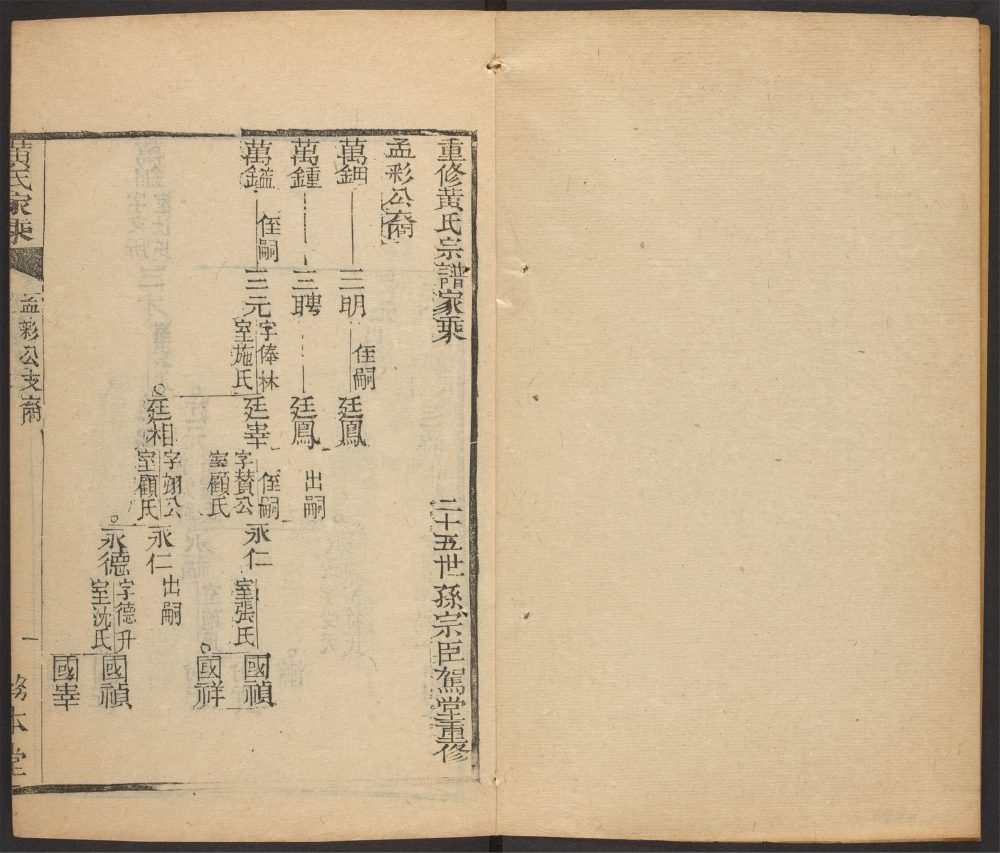 重修黄氏宗譜家乘
二十五世孫宗臣駕堂重修
孟彩公裔
萬鈿 三明 侄嗣 廷鳳
萬鍾 三聘 廷鳳 出嗣
萬鎰 侄嗣 三元 字俸林 室施氏 廷宰 字賛公 室顧氏 侄嗣 永仁 室張氏 國禎
國祥
廷相 字翊公 室顧氏 永仁 出嗣
永德 字德升 室沈氏 國禎
國宰
黄氏家乘
孟彩公支裔
一
務本堂